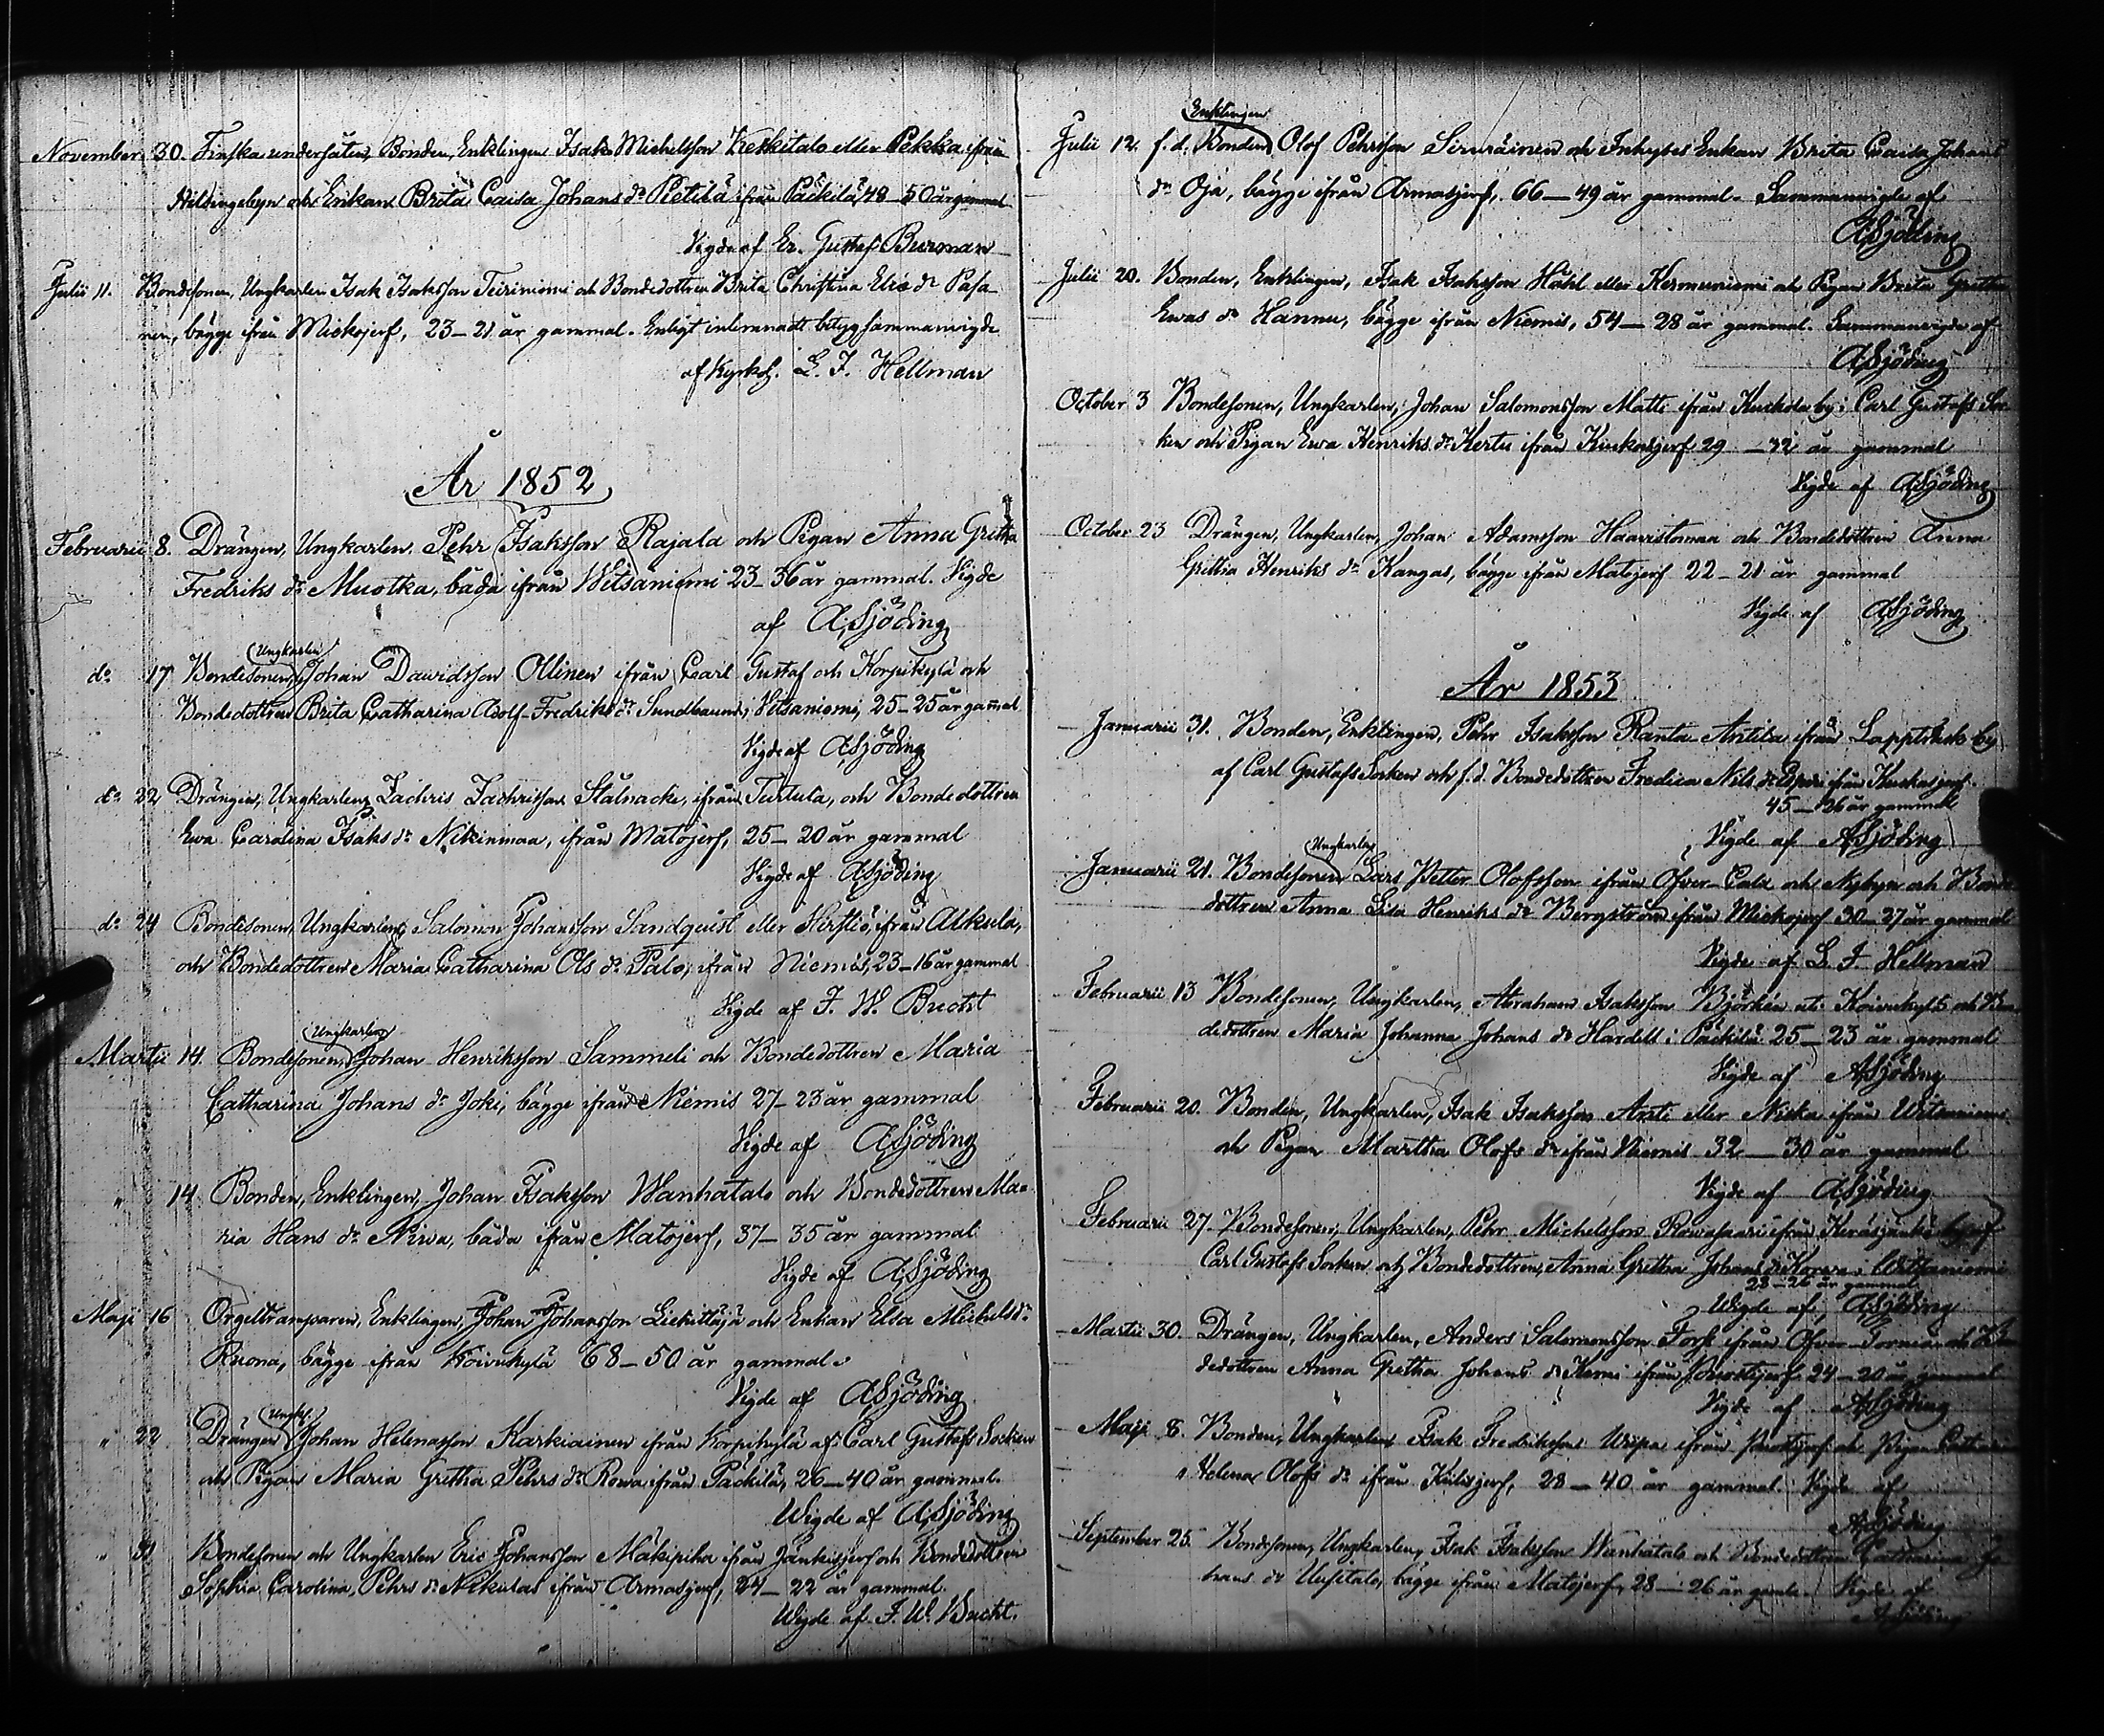 November 30. Finska undersåten, Bonden, Enklingen Isak Michelsson Keskitalo eller Pekka ifrån
Hietingebyn och Enkan Brita Caisa Johans dr Pietilä ifrån Päckilä, 48–50 år gammal
Vigde af Er. Gustaf Burman
Julii 11. Bondesonen, Ungkarlen Isak Isaksson Teiriniemi och Bondedottren Brita Christina Elis dr Pasa-
nen, bägge ifrån Miekojerf, 23–21 år gammal. Enligt inlemnadt betyg sammanvigde
af Kyrkoh. L. F. Hellman
År 1852
Februarii 8. Drängen, Ungkarlen Pehr Isaksson Rajala och Pigan Anna Gretha
Fredriks dr Muotka, båda ifrån Witsaniemi 23–36 år gammal. Vigde
af A. Sjöding
do 17 Bondesonen, Ungkarlen Johan Davidsson Ollinen ifrån Carl Gustaf och Korpikylä och
Bondedottren Brita Catharina Adolf Fredriks dr Sundbaum i Vitsaniemi, 25–25 år gamal
Vigde af A Sjöding
do 22 Drängen, Ungkarlen Zachris Zachrisson Stålnacke, ifrån Turtula, och Bondedottren
Ewa Carolina Isaks dr Nikinmaa, ifrån Matojerf, 25–20 år gammal
Vigde af A Sjöding
do 24 Bondesonen, Ungkarlen Salomon Johansson Sandquist eller Hirstiö, ifrån Alkula,
och Bondedottren Maria Catharina Ols dr Palo, ifrån Niemis, 23–16 år gammal
Vigde af F. W. Bucht
Martii 14. Bondesonen, Ungkarlen Johan Henriksson Sammeli och Bondedottren Maria
Catharina Johans dr Joki, bägge ifrån Niemis 27–23 år gammal
Vigde af A Sjöding
" 14 Bonden, Enklingen, Johan Isaksson Wanhatalo och Bondedottren Ma-
ria Hans dr Nirva, båda ifrån Matojerf, 37–35 år gammal
Vigde af A Sjöding
Maji 16 Orgeltramparen, Enklingen, Johan Johansson Liekittäjä och Enkan Elsa Michels dr
Ruona, bägge ifrån Koivukylä 68–50 år gammal.
Vigde af A Sjöding
" 22 Drängen Ungk. Johan Helenasson Karkiainen ifrån Korpikylä af Carl Gustafs Socken
och Pigan Maria Gretha Pehrs dr Rowa ifrån Päckilä, 26–40 år gammal.
Wigde af A Sjöding
" 31 Bondesonen och Ungkarlen Eric Johansson Mäkipiha ifrån Jänkisjerf och Bondedottren
Sophia Carolina Pehrs dr Nikulas ifrån Armasjerf, 24–22 år gammal.
Wigde af F. W. Bucht.
Julii 12. f.d. Bonden Enklingen Olof Pehrsson Siruräinen och Inhyses Enkan Brita Caisa Johans
dr Oja, bägge ifrån Armasjerf, 66–49 år gammal. Sammanvigde af
A Sjöding
Julii 20. Bonden, Enklingen, Isak Isaksson Håhl eller Kermuniemi och Pigan Brita Gretha
Ewas dr Hannu, bägge ifrån Niemis, 54–28 år gammal. Sammanvigde af
A Sjöding
October 3 Bondesonen, Ungkarlen, Johan Salomonsson Matti ifrån Kuckola by i Carl Gustafs Soc-
ken och Pigan Ewa Henriks dr Kertu ifrån Kuckasjerf 29–32 år gammal
Vigde af A Sjöding
October 23 Drängen, Ungkarlen, Johan Adamsson Haavistomaa och Bondedottren Anna
Grettha Henriks dr Kangas, bägge ifrån Matojerf 22–21 år gammal
Vigde af A Sjöding
År 1853
Januarii 31. Bonden, Enklingen, Pehr Isaksson Ranta-Antila ifrån Lappträsk by
af Carl Gustafs Socken och f.d. Bondedottren Fredica Nils dr Esperi ifrån Kuckasjerf
45–26 år gammal
Vigde af A Sjöding
Januarii 21. Bondesonen Ungkarlen Lars Petter Olofsson ifrån Öfver-Calix och Nybyn och Bonde-
dottren Anna Lisa Henriks dr Bergström ifrån Miekojerf 30–27 år gammal
Vigde af L. F. Hellman
Februarii 13 Bondesonen, Ungkarlen, Abraham Isaksson Björkén uti Koivukylä och Bon-
dedottren Maria Johanna Johans dr Hardell i Päckilä 25–23 år gammal
Vigde af A Sjöding
Februarii 20. Bonden, Ungkarlen, Isak Isaksson Antti eller Niska ifrån Witsaniemi
och Pigan Martha Olofs dr ifrån Niemis 32–30 år gammal
Vigde af A Sjöding
Februarii 27. Bondesonen, Ungkarlen, Pehr Michelsson Rowasaari ifrån Keräsjänkä by af
Carl Gustafs Socken och Bondedottren, Anna Gretha Johans dr Korva i Witsaniemi
28–26 år gammal
Wigde af, A Sjöding
Martii 30. Drängen, Ungkarlen, Anders Salomonsson Fors ifrån Öfver-Torneå och Bon-
dedottren Anna Gretha Johans dr Kemi ifrån Puostijerf 24–20 år gammal
Vigde af A Sjöding
Maji 8. Bonden, Ungkarlen Isak Fredriksson Wipa ifrån Puostijerf och Pigan
Helena Olofs dr ifrån Kuksjerf, 28–40 år gammal. Vigde af
A Sjöding
September 25. Bondesonen, Ungkarlen, Isak Isaksson Wanhatalo och Bondedottren Catharina Jo-
hans dr Uusitalo, bägge ifrån Matojerf, 28–26 år gamle. Vigde af
A Sjöding